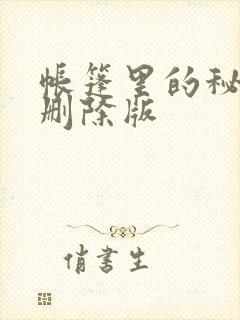 帐篷里的秘
删除版
俏书生